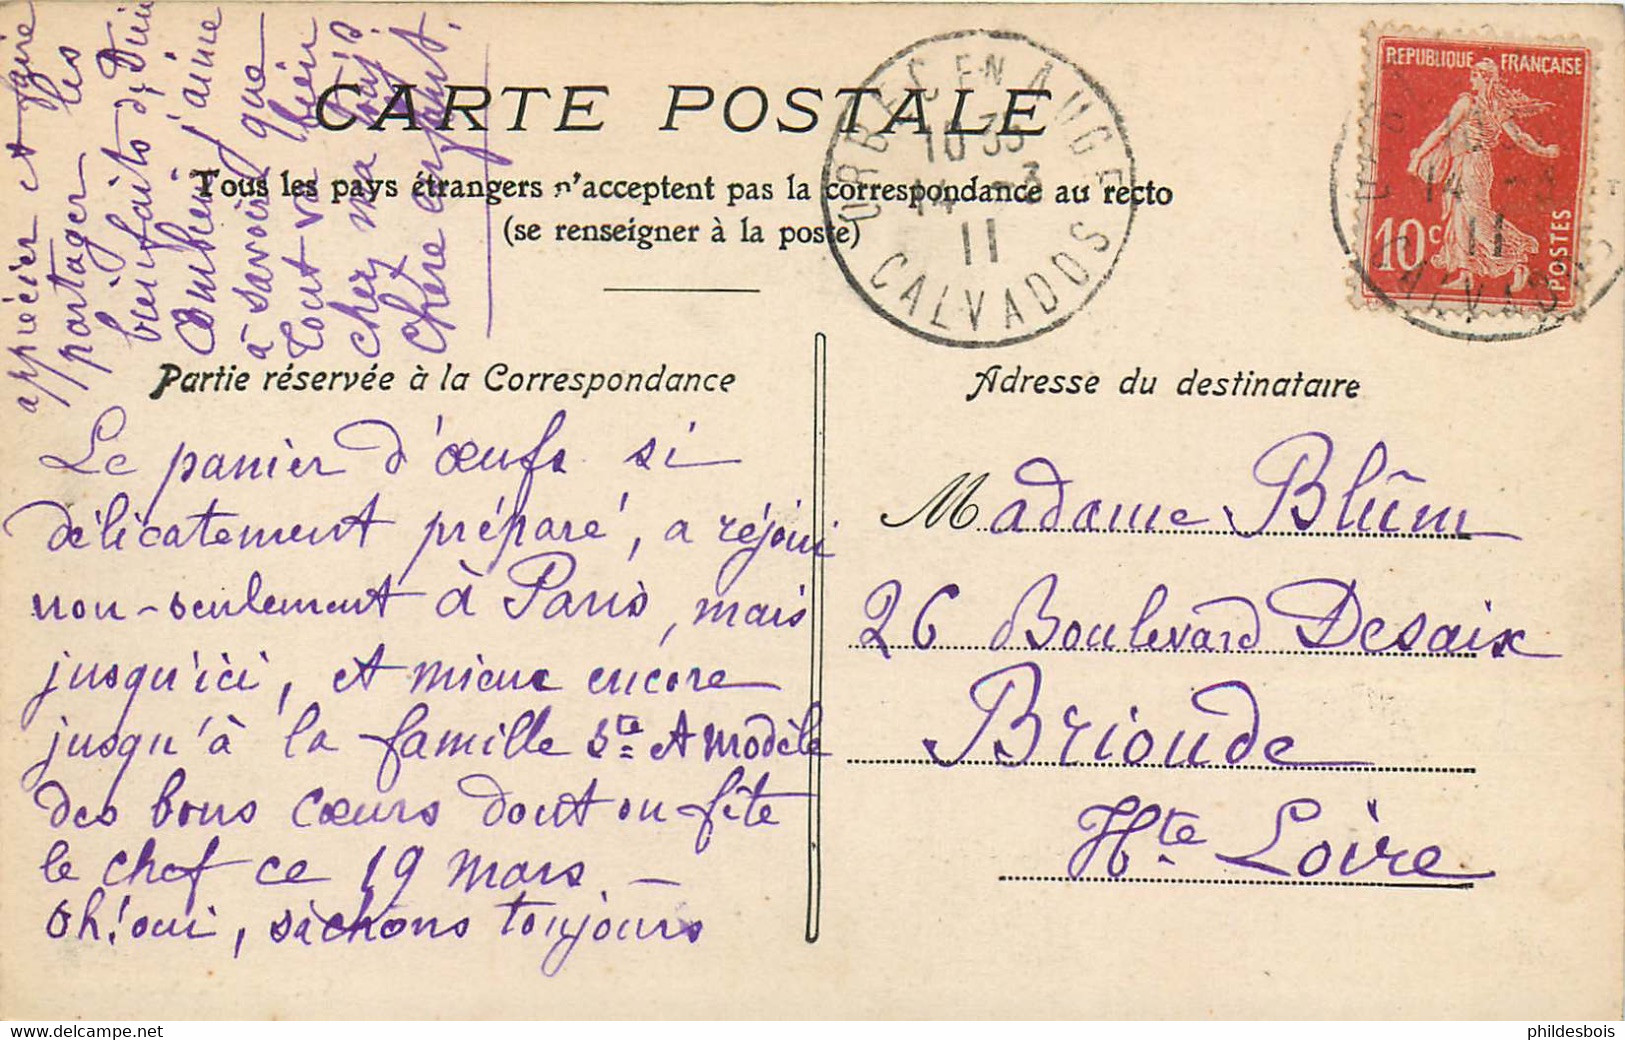 CARTE POSTALE
Tous les pays étrangers n'acceptent pas la correspondance au recto
(se renseigner à la poste)
Partie réservée à la Correspondance
Le panier d'œufs si
délicatement préparé, a réjoui
non-seulement à Paris, mais
jusqu'ici, et mieux encore
jusqu'à la famille Ste et modèle
des bons cœurs dont on fête
le chef ce 19 mars. —
Oh! oui, sachons toujours
apprécier et faire
partager les
bienfaits de Dieu
Combien j'aime
à savoir que
tout va bien
chez ma touj.
chère enfant.
Adresse du destinataire
Madame Blum
26 Boulevard Desaix
Brioude
Hte Loire
ORBEC EN AUGE
10 35
14 -3
11
CALVADOS
REPUBLIQUE FRANÇAISE
10c
POSTES
14 -3
11
CALVADOS
phildesbois